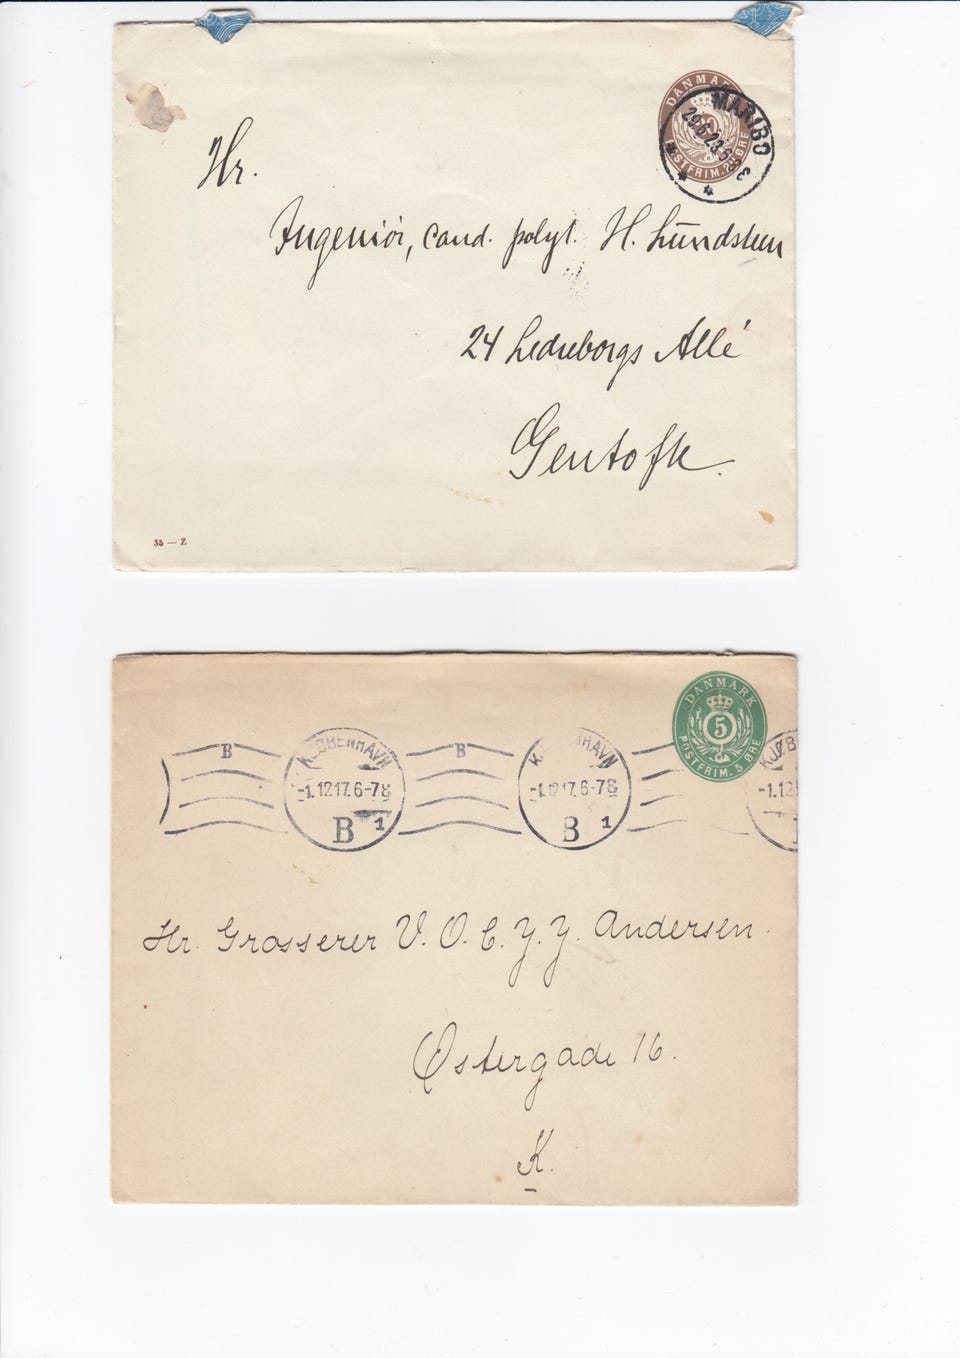 DANMARK
POSTFRIM. 25 ØRE
MARIBO
29.6.23.
Hr.
Ingeniör, cand. polyt. H. Lundsteen
24 Ledreborgs Allé
Gentofte.
35 — Z
DANMARK
5
POSTFRIM. 5 ØRE
B B
KJØBENHAVN KJØBENHAVN KJØB
-1.12.17. 6-7 E -1.12.17. 6-7 E -1.12
B 1 B 1
Hr. Grosserer V. O. C. Y. Y. Andersen.
Østergade 16.
K.